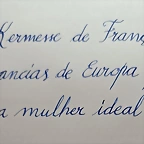 Kermesse de Fran
ancias de Europa
a mulher ideal